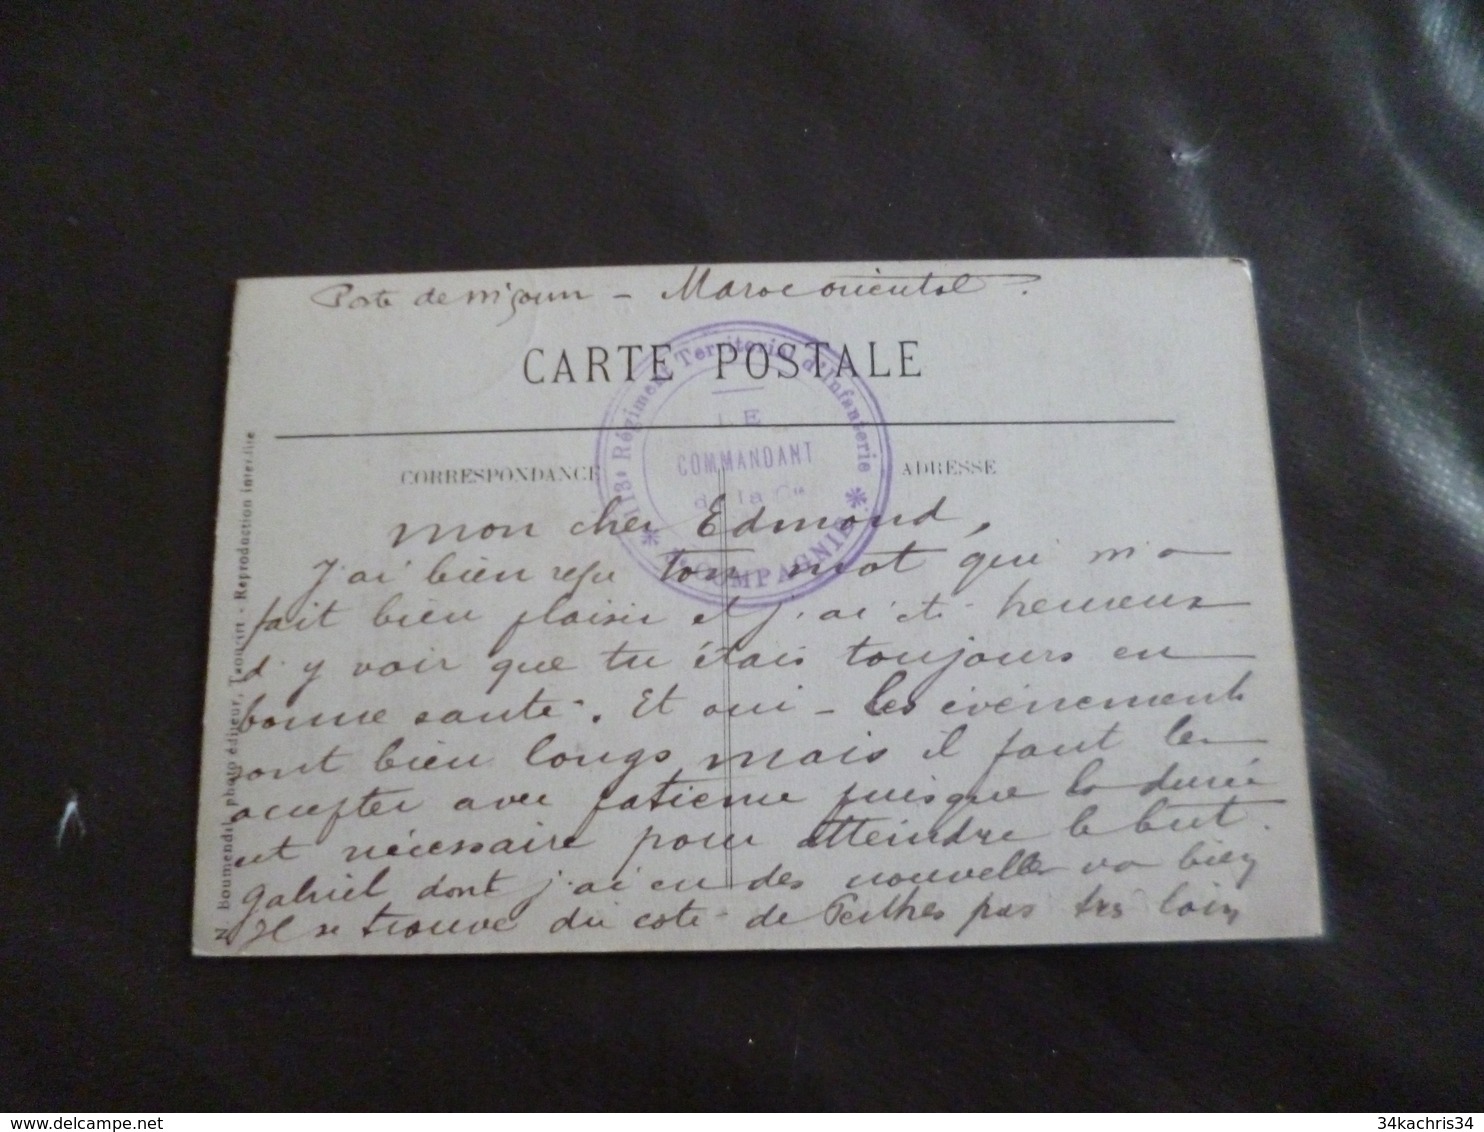 Poste de M'Çoun - Maroc oriental.
CARTE POSTALE
113e Régiment Territorial d'Infanterie
LE
COMMANDANT
de la Cie
COMPAGNIE
CORRESPONDANCE
ADRESSE
Mon cher Edmond,
J'ai bien reçu ton mot qui m'a
fait bien plaisir et j'ai été heureux
d'y voir que tu étais toujours en
bonne santé. Et oui - les événements
sont bien longs mais il faut les
accepter avec patience puisque la durée
est nécessaire pour atteindre le but.
Gabriel dont j'ai eu des nouvelles va bien
Il se trouve du côté de Perthes pas très loin
N. Boumendil photo éditeur, Taourirt - Reproduction interdite
34kachris34